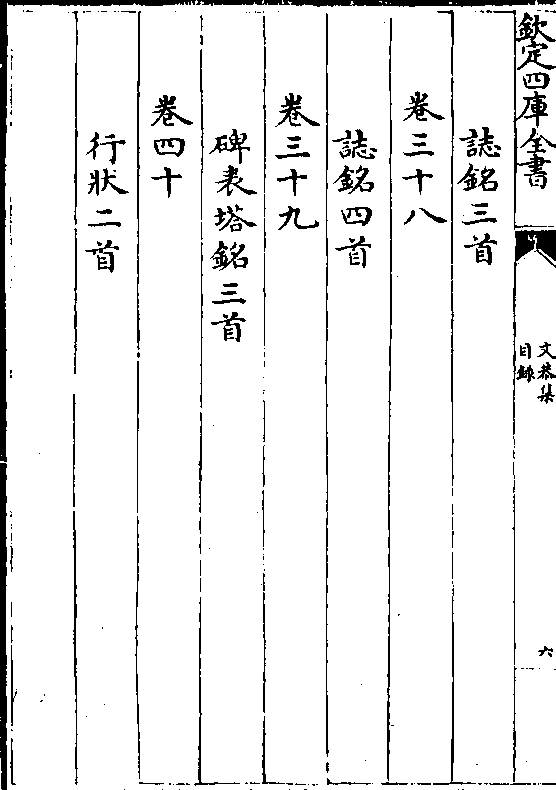 欽定四庫全書
文恭集
目録
六
誌銘三首
卷三十八
誌銘四首
卷三十九
碑表塔銘三首
卷四十
行狀二首